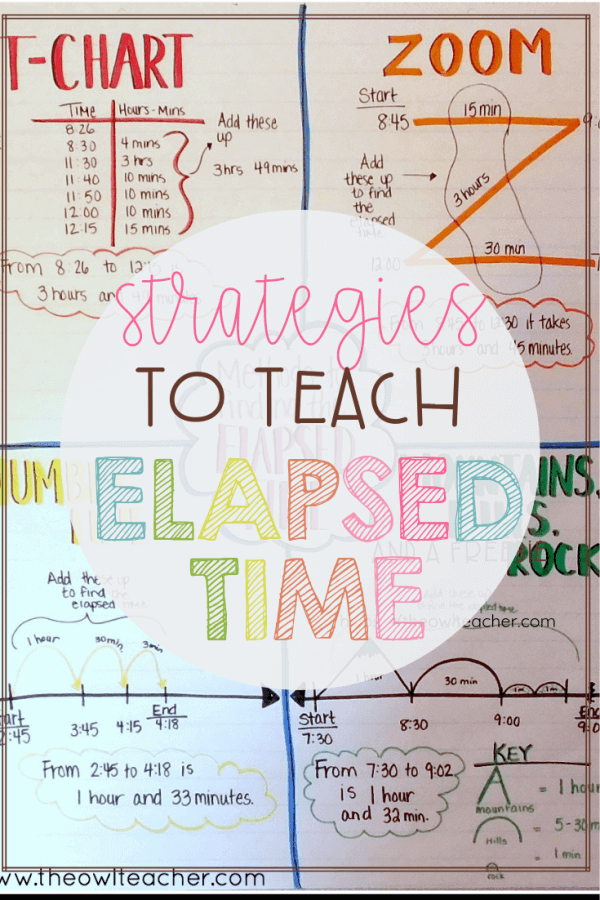 T-CHART
TIME Hours-Mins
8:26
8:30 4 mins
11:30 3 hrs
11:40 10 mins
11:50 10 mins
12:00 10 mins
12:15 15 mins
Add these
up
3hrs 49mins
From 8:26 to
3 hours
ZOOM
Start
8:45 15 min
Add
these up
to find
the
elapsed
time
3 hours
12:00 30 min
30 it takes
minutes.
strategies
TO TEACH
ELAPSED
TIME
Add the
to find
elapsed
1 hour 30min 3min
3:45 4:15 End
4:18
From 2:45 to 4:18 is
1 hour and 33 minutes.
ROCK
theowlteacher.com
30 min 1m 1m
Start
7:30 8:30 9:00
From 7:30 to 9:02
is 1 hour
and 32 min.
KEY
= 1 hour
mountains
= 5-30
Hills
= 1 min
rock
www.theowlteacher.com